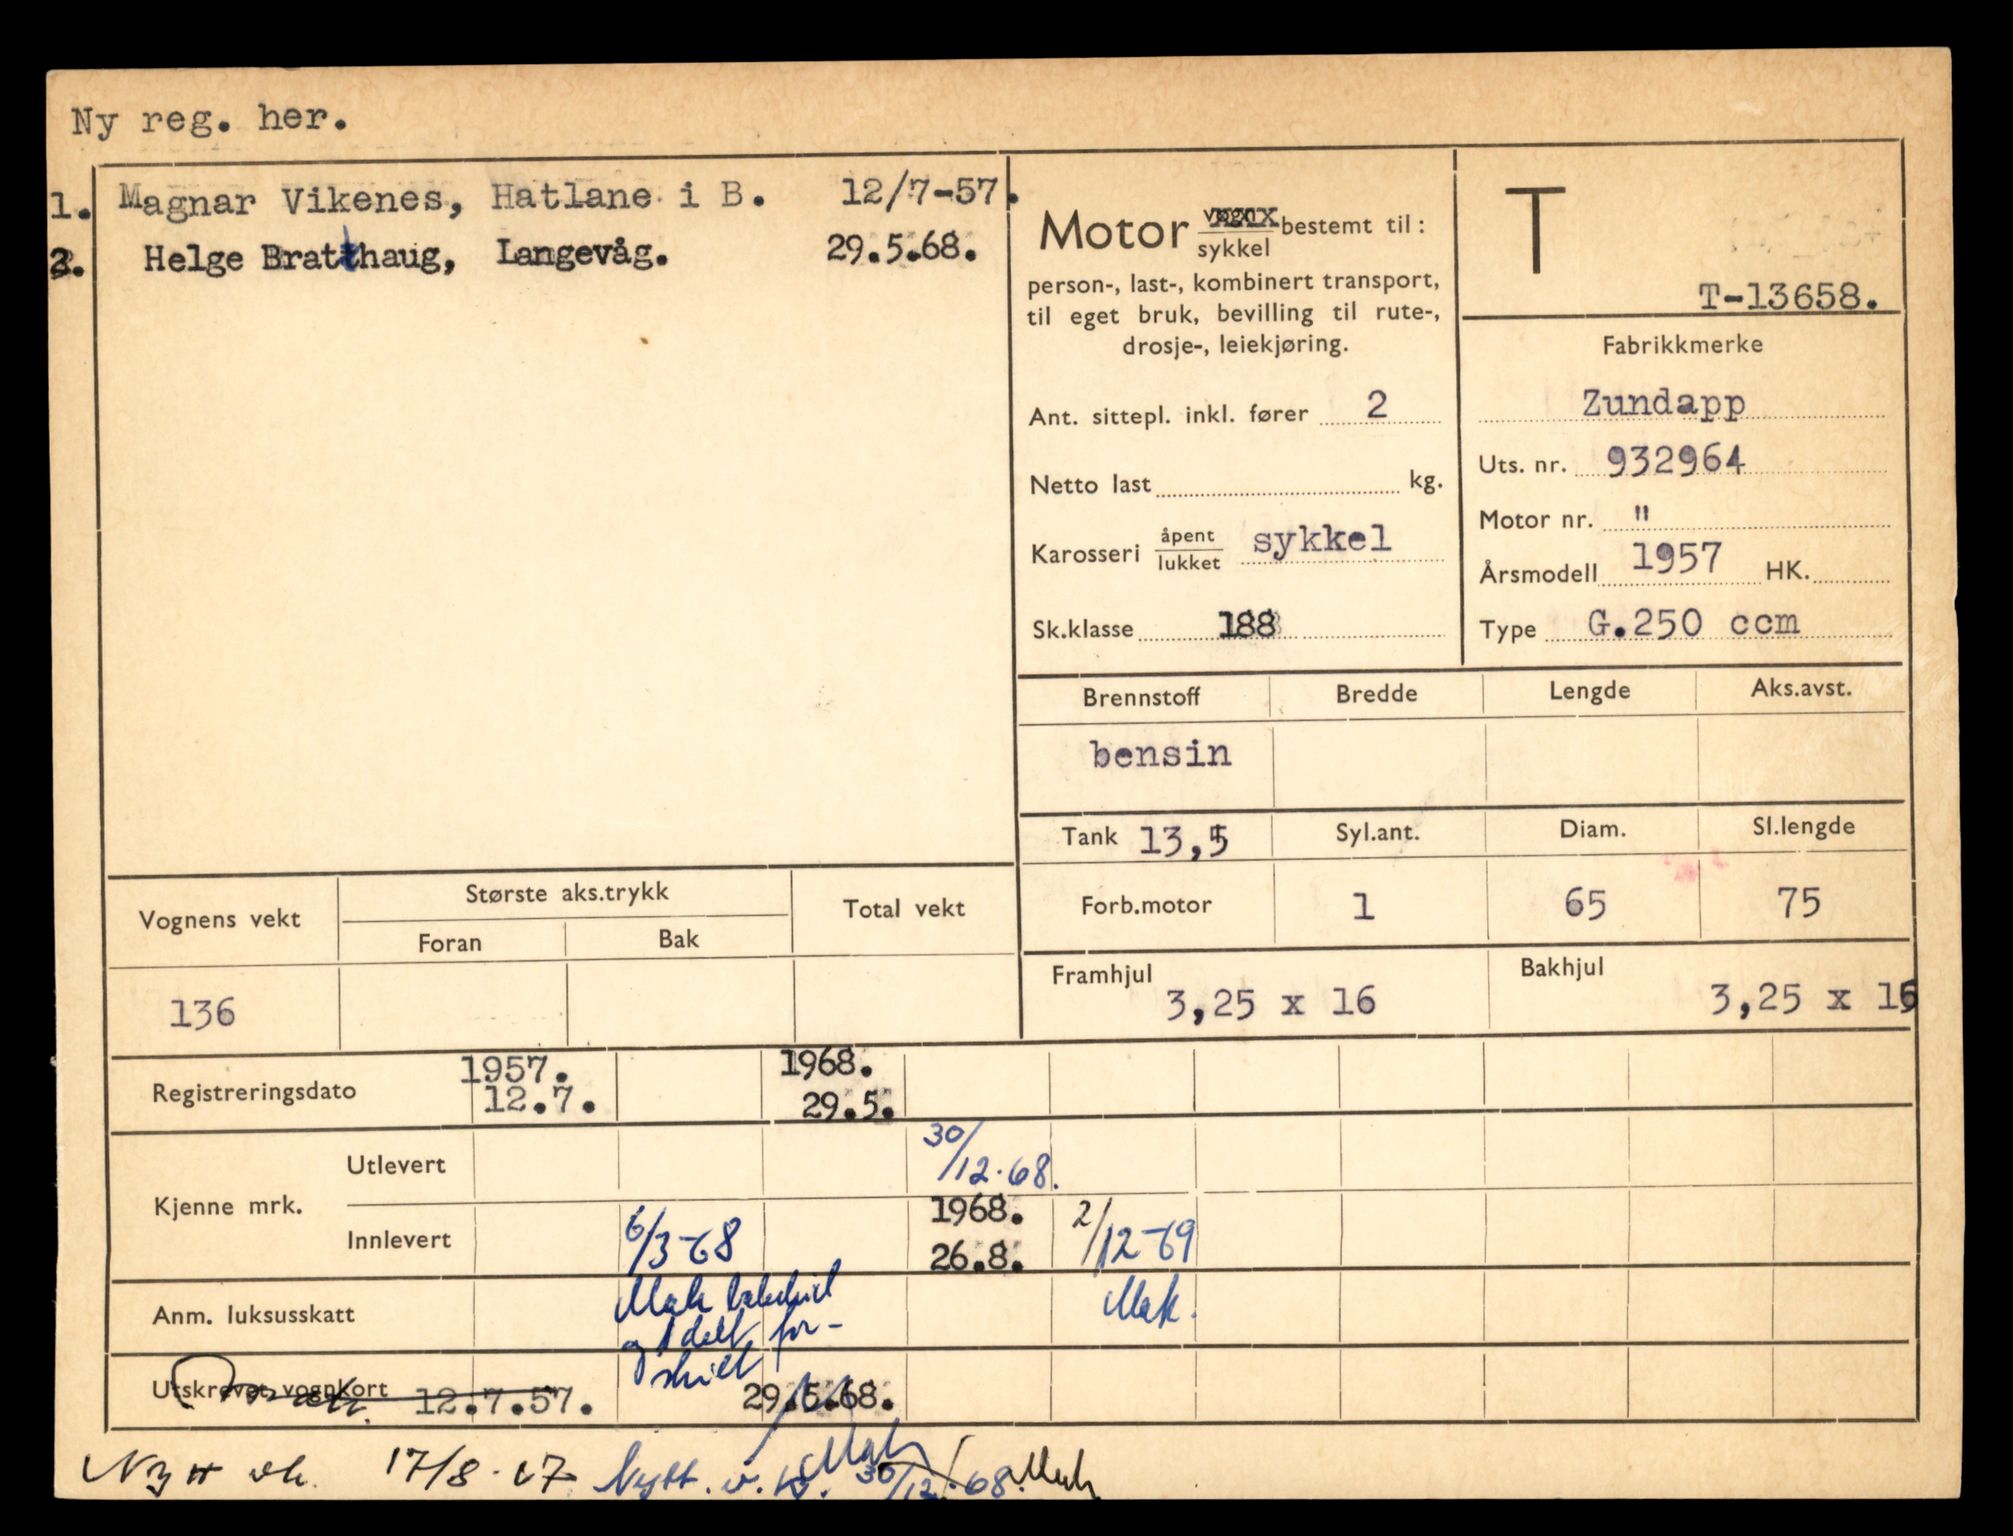 Ny reg. her.
1. Magnar Vikenes, Hatlane i B. 12/7-57.
2. Helge Bratthaug, Langevåg. 29.5.68.
Motor vogn bestemt til:
sykkel
person-, last-, kombinert transport,
til eget bruk, bevilling til rute-,
drosje-, leiekjøring.
Ant. sittepl. inkl. fører 2
Netto last kg.
Karosseri åpent sykkel
lukket
Sk.klasse 188
T
T-13658.
Fabrikkmerke
Zundapp
Uts. nr. 932964
Motor nr. "
Årsmodell 1957 HK.
Type G.250 ccm
Brennstoff Bredde Lengde Aks.avst.
bensin
Tank 13,5 Syl.ant. Diam. Sl.lengde
Forb.motor 1 65 75
Framhjul Bakhjul
3,25 x 16 3,25 x 16
Vognens vekt Største aks.trykk Total vekt
Foran Bak
136
Registreringsdato 1957. 1968.
12.7. 29.5.
Kjenne mrk. Utlevert 30/12.68.
Innlevert 6/3-68 1968. 2/12-69
26.8.
Anm. luksusskatt Mak bakskilt Mak.
og 1 delt for-
skilt
Utskrevet vognkort 12.7.57. 29.5.68.
Mak
Nytt vk. 17/8.67 Nytt. v.k. 30/12.68. Mak